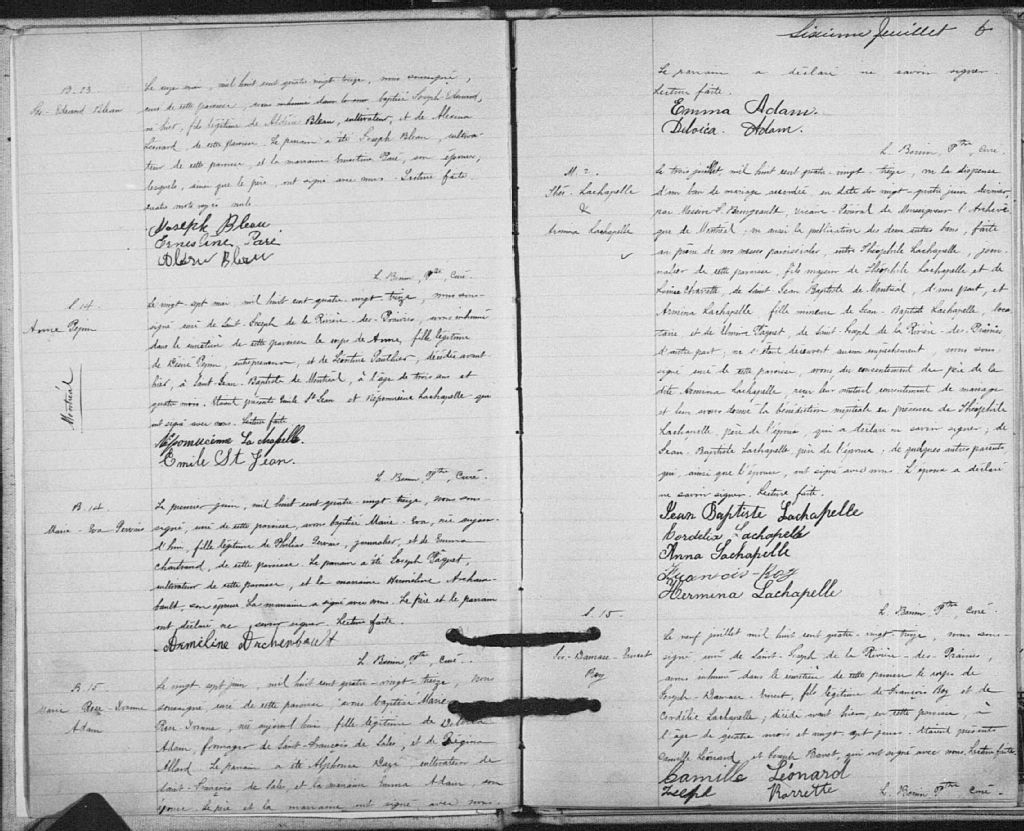 B. 13.
Jos-Edouard Bleau
Le seize mai, mil huit cent quatre vingt treize, nous soussigné,
curé de cette paroisse, avons baptisé Joseph Edouard,
né hier, fils légitime de Bleau, cultivateur, et de
Léonard, de cette paroisse. Le parrain a été Joseph Bleau, cultiva-
teur de cette paroisse, et la marraine Ernestine Paré, son épouse,
lesquels, ainsi que le père, ont signé avec nous. Lecture faite.
mots nuls
Joseph Bleau
Ernestine Paré
Bleau
Curé
S. 14
Anne
Montréal
Le vingt sept mai, mil huit cent quatre-vingt-treize, nous sous-
signé curé de Saint-Joseph de la Rivière-des-Prairies, avons inhumé
dans le cimetière de cette paroisse le corps de Anne, fille légitime
de entrepreneur, et de décédée avant
hier, à Saint Jean-Baptiste de Montréal, à l'âge de trois ans et
quatre mois. Etaient présents Emile St Jean et Népomucène Lachapelle qui
ont signé avec nous. Lecture faite.
Népomucène Lachapelle.
Emile St Jean.
Ptre, Curé.
B. 14
Marie-Eva Gervais
Le premier juin, mil huit cent quatre vingt treize, nous sous-
signé, curé de cette paroisse, avons baptisé Marie-Eva, née aujour-
d'hui, fille légitime de Philias Gervais, journalier, et de Emma
Chartrand, de cette paroisse. Le parrain a été Joseph Paquet,
cultivateur de cette paroisse, et la marraine Herméline Archam-
bault son épouse. La marraine a signé avec nous. Le père et le parrain
ont déclaré ne savoir signer. Lecture faite.
Ptre, Curé.
B. 15
Marie Rose-
Adam
Le vingt sept juin, mil huit cent quatre-vingt-treize, nous
soussigné, curé de cette paroisse avons baptisé Marie
Rose née aujourd'hui, fille légitime de
Adam, fromager de Saint-François de Sales, et de Régina
Allard. Le parrain a été Alphonse cultivateur de
Saint-François de Sales, et la marraine Emma Adam, son
épouse. Le père et la marraine ont signé avec nous.
Sixième feuillet 6
Le parrain a déclaré ne savoir signer.
Lecture faite.
Emma Adam.
Adam.
Ptre, Curé.
M. 2.
Théo. Lachapelle
&
Armina Lachapelle
Le trois juillet, mil huit cent quatre-vingt-treize, vu la dispense
d'un ban de mariage accordée en date du vingt-quatre juin dernier
par Messire Bourgeault, vicaire Général de Monseigneur l'Archevê-
que de Montréal; vu aussi la publication des deux autres bans, faite
au prône de nos messes paroissiales, entre Théophile Lachapelle, jour-
nalier de cette paroisse, fils majeur de Théophile Lachapelle et de
de Saint-Jean Baptiste de Montréal, d'une part, et
Armina Lachapelle fille mineure de Jean-Baptiste Lachapelle,
et de Paquet, de Saint-Joseph de la Rivière-des-Prairies
d'autre part; ne s'étant découvert aucun empêchement, nous sous-
signé curé de cette paroisse, avons du consentement du père de la
dite Armina Lachapelle, reçu leur mutuel consentement de mariage
et leur avons donné la bénédiction nuptiale en présence de Théophile
Lachapelle, père de l'époux, qui a déclaré ne savoir signer; de
Jean-Baptiste Lachapelle, père de l'épouse; de quelques autres parents
qui, ainsi que l'épouse, ont signé avec nous. L'époux a déclaré
ne savoir signer. Lecture faite.
Jean Baptiste Lachapelle
Cordelia Lachapelle
Anna Lachapelle
François-Roy
Hermina Lachapelle
Ptre Curé.
S. 15.
Jos-Damase-Ernest
Roy
Le neuf juillet mil huit cent quatre-vingt-treize, nous sous-
signé curé de Saint-Joseph de la Rivière-des-Prairies,
avons inhumé dans le cimetière de cette paroisse le corps de
Joseph-Damase-Ernest, fils légitime de François Roy et de
Cordélie Lachapelle; décédé avant hier, en cette paroisse, à
l'âge de quatre mois et vingt sept jours. Etaient présents
Camille Léonard et Joseph Barrette, qui ont signé avec nous. Lecture faite
Camille Léonard
Joseph Barrette
Ptre Curé.